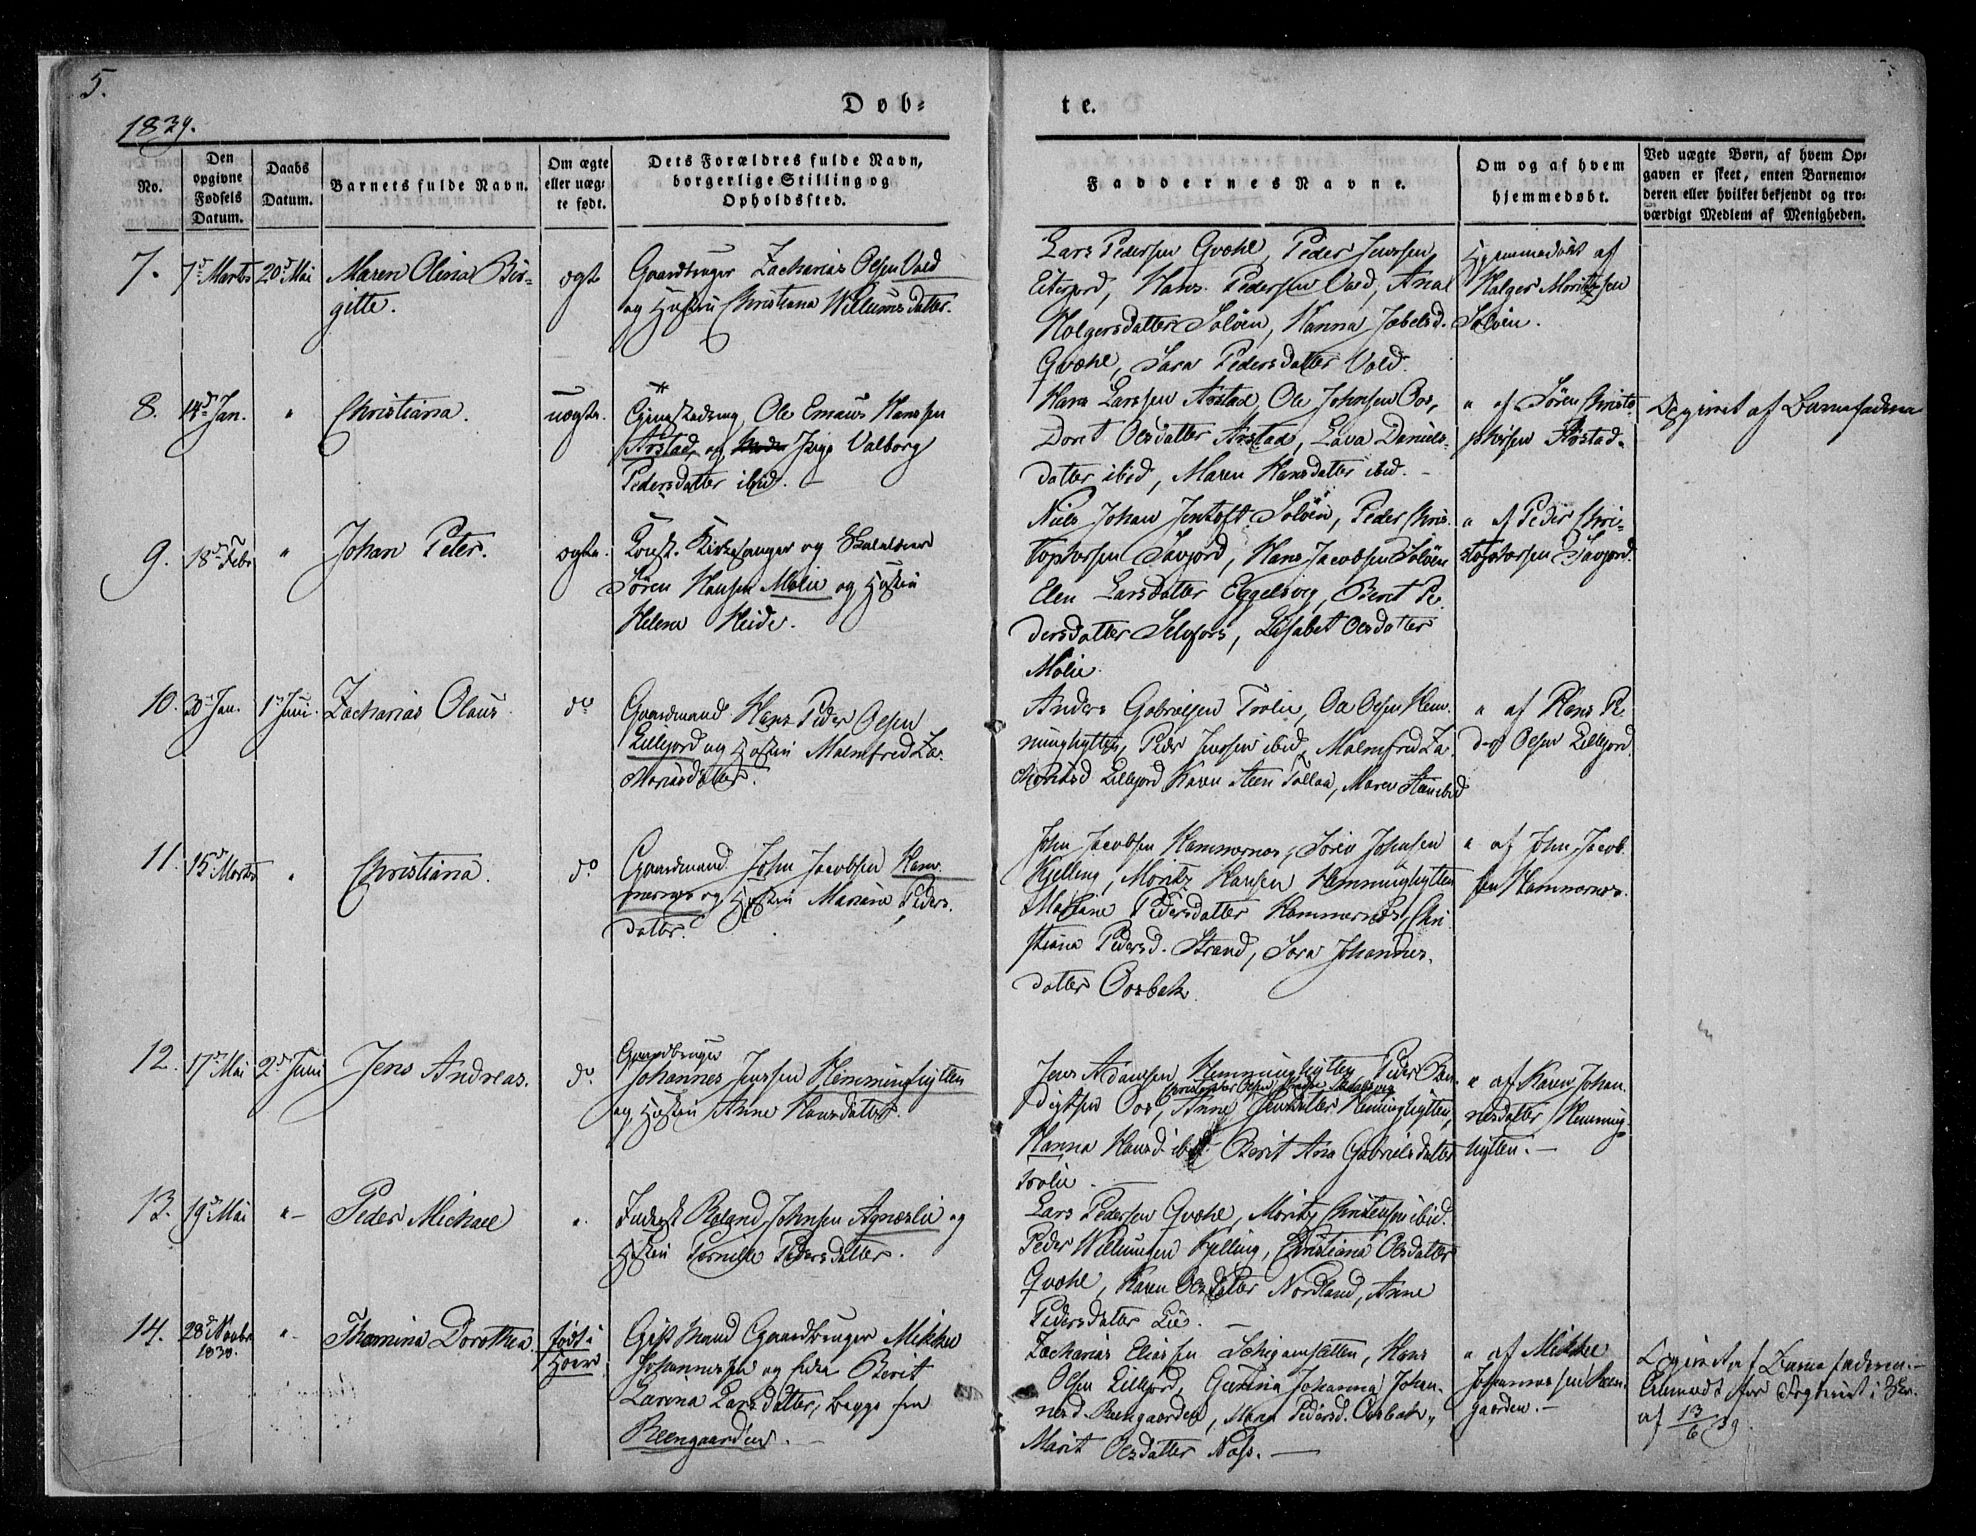 5.
Døb-
te.
1839.
No.
Den
opgivne
Fødsels
Datum.
Daabs
Datum.
Barnets fulde Navn.
Om ægte
eller uæg-
te født.
Dets Forældres fulde Navn,
borgerlige Stilling og
Opholdssted.
Faddernes Navne.
Om og af hvem
hjemmedøbt.
Ved uægte Børn, af hvem Op-
gaven er skeet, enten Barnemo-
deren eller hvilket bekjendt og tro-
værdigt Medlem af Menigheden.
7.
7d Marts
20d Mai
Maren Olina Bir-
gitte.
ægte
Gaardbruger Zacharias Olsen Vold
og Hustru Christiana Willumsdatter.
Lars Pedersen Gvæhl, Peder Jenssen
Eiterjord, Hans Pedersen Vold, Ana
Holgersdatter Soløen, Hanna Jæbelsd.
Gvæhl, Sara Pedersdatter Vold.
Hjemmedøbt af
Holger Moritzsen
Soløen.
8.
14d Jan.
"
Christiana.
uægte.
Ole Emaus Hanssen
Arstad og Inger Valborg
Pedersdatter ibid.
Hans Larssen Arstad, Ole Johnsen Oos,
Doret Olsdatter Arstad, Lava Daniels-
datter ibid, Maren Hansdatter ibid.
" af Søren Christo
phersen Arstad.
Opgivet af Barnefaderen
9.
18d Febr
"
Johan Peter.
ægte.
Const. Kirkesanger og Skolelærer
Søren Hansen Molie og Hustru
Helena Heide.
Niels Johan Jentoft Soløen, Peder Chris-
tophersen Savjord, Hans Jacobsen Soløen
Elen Larsdatter Eggelsvig, Berit Pe-
dersdatter Selsfors, Lisabet Olsdatter
Molie.
" af Peder Chri-
stophersen Savjord.
10.
20d Jan.
1d Juni.
Zacharias Olaus.
do
Gaardmand Hans Peder Olsen
Lillejord og Hustru Malmfred Za-
chariasdatter.
Anders Gabrielsen Trolie, Ole Olsen Hem-
minghytten, Peder Jenssen ibid, Malmfred Za-
chariasd Lillejord Karen Steen Tollaa, Maren ibid
" af Hans Pe-
der Olsen Lillejord
11.
15d Marts
"
Christiana.
do
Gaardmand John Jacobsen Ham-
mernæs og Hustru Mariane Peders-
datter.
John Jacobsen Hammernæs, Søren Johnsen
Kjelling, Moritz Hansen Hemminghytten
Mariane Pedersdatter Hammernæs, Chri-
stiana Pedersd. Strand, Sara Johannes-
datter Oosbak.
" af John Jacob-
sen Hammernæs.
12.
17d Mai
2d Juni
Jens Andreas.
do.
Gaardbruger
Johannes Jenssen Hemminghytten
og Hustru Anne Hansdatter.
Jens Adamsen Hemminghytten, Peder Ben-
Christopher Olsen
digtsen Oos, Anne Jensdatter Hemminghytten,
Hanna Hansd ibid Berit Ana Gabrielsdatter
Trolie.
" af Karen Johan-
nesdatter Hemming-
hytten.
13.
19d Mai
"
Peder Michael
"
Inderst Roland Johnsen Agnæslie og
Hustru Pernille Pedersdatter.
Lars Pedersen Gvæhl, Moritz Christensen ibid.
Peder Willumsen Kjelling, Christiana Olsdatter
Gvæhl, Karen Olsdatter Nordland, Anne
Pedersdatter Lie.
14.
28d Novbr
1838.
"
Thomina Dorothea
født i
Hoer
Gift Mand Gaardbruger Mikkel
Johannessen og Berit
Larina Larsdatter, begge fra
Reengaarden.
Zacharias Eliassen Schigamsletten, Hans
Olsen Lillejord, Gurina Johanna Johan-
nesd. Reengaarden, Maren Pedersd. Oosbak,
Marit Olsdatter Næss.
" af Mikkel
Johannessen Reen-
gaarden.
Opgivet af Barnefaderen.
Anmeldt for Fogderiet i Br.
af 13/6 39.